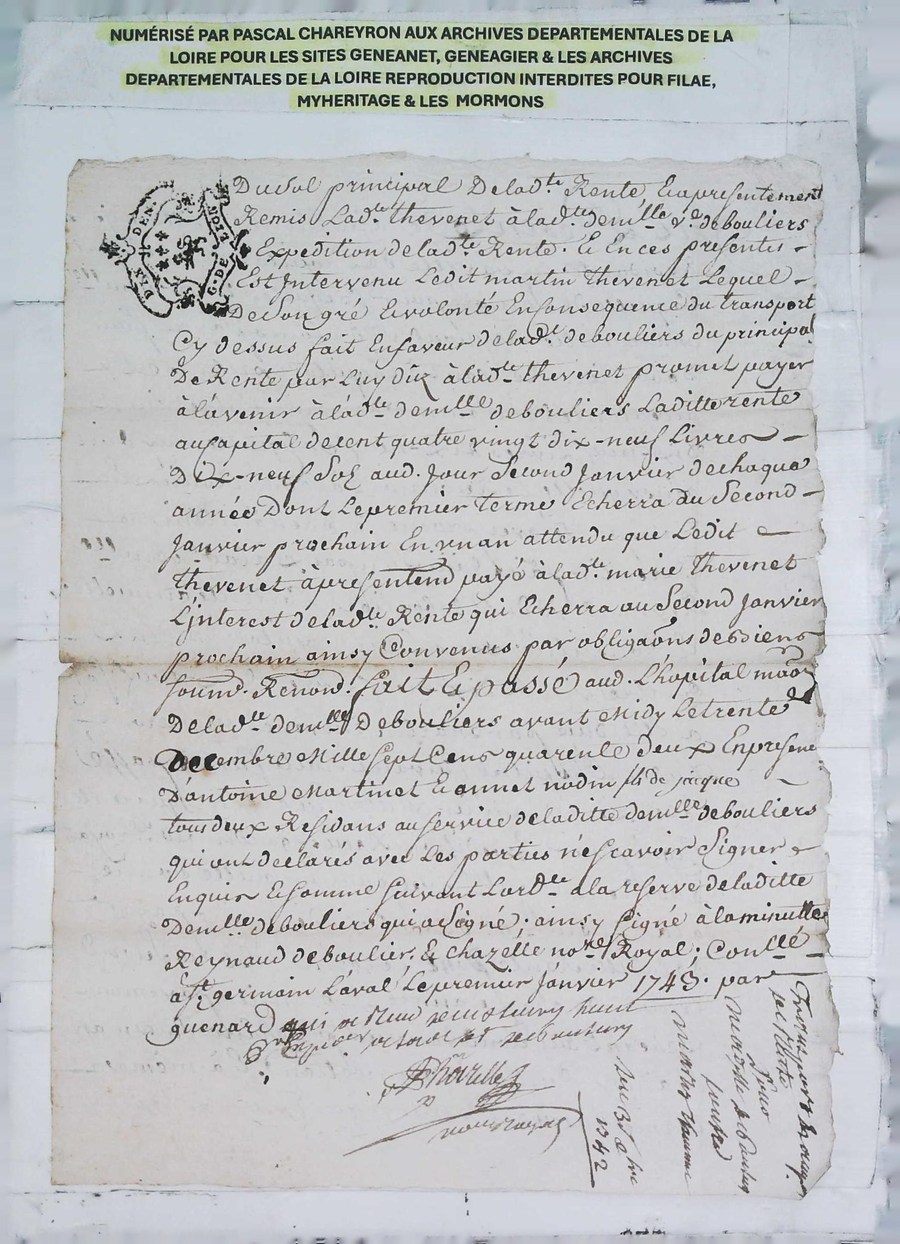 NUMÉRISÉ PAR PASCAL CHAREYRON AUX ARCHIVES DEPARTEMENTALES DE LA
LOIRE POUR LES SITES GENEANET, GENEAGIER & LES ARCHIVES
DEPARTEMENTALES DE LA LOIRE REPRODUCTION INTERDITES POUR FILAE,
MYHERITAGE & LES MORMONS
DIX DEN
G. DE LION
Du Sol principal De lad.te Rente, Et apresentement
Remis Lad.te thevenet à lad.te demlle v.e debouliers
Expedition delad.te Rente. Et En ces presentes –
Est Intervenu Ledit martin thevenet Lequel –
De Son gré Et volonté En Consequence du transport
Cy dessus fait En faveur delad.te debouliers du principal
De Rente par Luy dûz à lad.te thevenet promet payer
à lavenir à lad.te demlle debouliers Laditte rente
au Capital de cent quatre vingt dix-neuf Livres –
Dix-neuf Solz aud. Jour Second Janvier de chaque
année Dont Le premier terme Echerra au Second –
Janvier prochain En un an attendu que Ledit –
thevenet à present payé à lad.te marie thevenet
L'interest delad.te Rente qui Echerra au Second Janvier
prochain ainsy Convenus par obligaôns de Biens
soum.d. Renond. fait Et passé aud. L'hopital maôn
De lad.te demlle Debouliers avant Midy Le trente
Decembre Mille Sept Cens quarente deux En presence
D'antoine Martinet Et annet nodin fils de jacque –
tous deux Residans au service de laditte demlle debouliers
qui ont declarés avec Les parties ne Scavoir Signer
Enquis Et Somme Suivant Lord.ce a la reserve de laditte
Demlle debouliers qui a Signé; ainsy Signé à la minutte
Reynaud deboulier, & Chazelle nore Royal; Conllé –
a St. germain Laval Le premier Janvier 1743. par
guenard
Chazelle
no.re Royal
1742